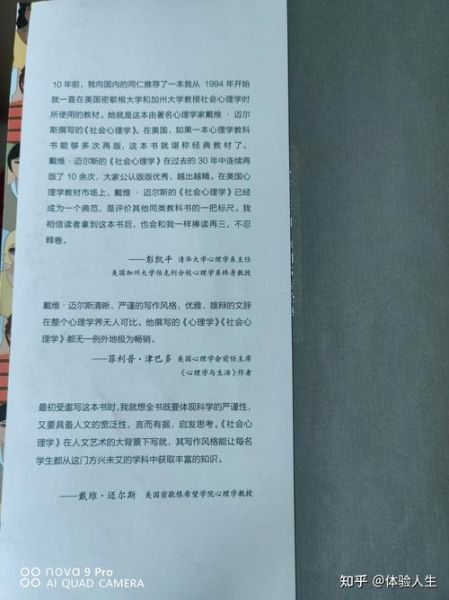 10 年前，我向国内的同仁推荐了一本我从 1994 年开始
就一直在美国密歇根大学和加州大学教授社会心理学时
所使用的教材。她就是这本由著名心理学家戴维·迈尔
斯撰写的《社会心理学》。在美国，如果一本心理学教科
书能够多次再版，这本书就堪称经典教材了。
戴维·迈尔斯的《社会心理学》在过去的 30 年中连续再
版了 10 余次，大家公认版版优秀，越出越精。在美国心
理学教材市场上，戴维·迈尔斯的《社会心理学》已经
成为一个典范，是评价其他同类教科书的一把标尺。我
相信读者拿到这本书后，也会和我一样捧读再三，不忍
释卷。
——彭凯平 清华大学心理学系主任
美国加州大学伯克利分校心理学系终身教授
戴维·迈尔斯清晰、严谨的写作风格，优雅、雄辩的文辞
在整个心理学界无人可比。他撰写的《心理学》《社会心
理学》都无一例外地极为畅销。
——菲利普·津巴多 美国心理学会前任主席
《心理学与生活》作者
最初受邀写这本书时，我就想全书既要体现科学的严谨性，
又要具备人文的宽泛性，言而有据，启发思考。《社会心
理学》在人文艺术的大背景下写就，其写作风格能让每名
学生都从这门方兴未艾的学科中获取丰富的知识。
——戴维·迈尔斯 美国密歇根希望学院心理学教授
nova 9 Pro
AI QUAD CAMERA
知乎 @体验人生